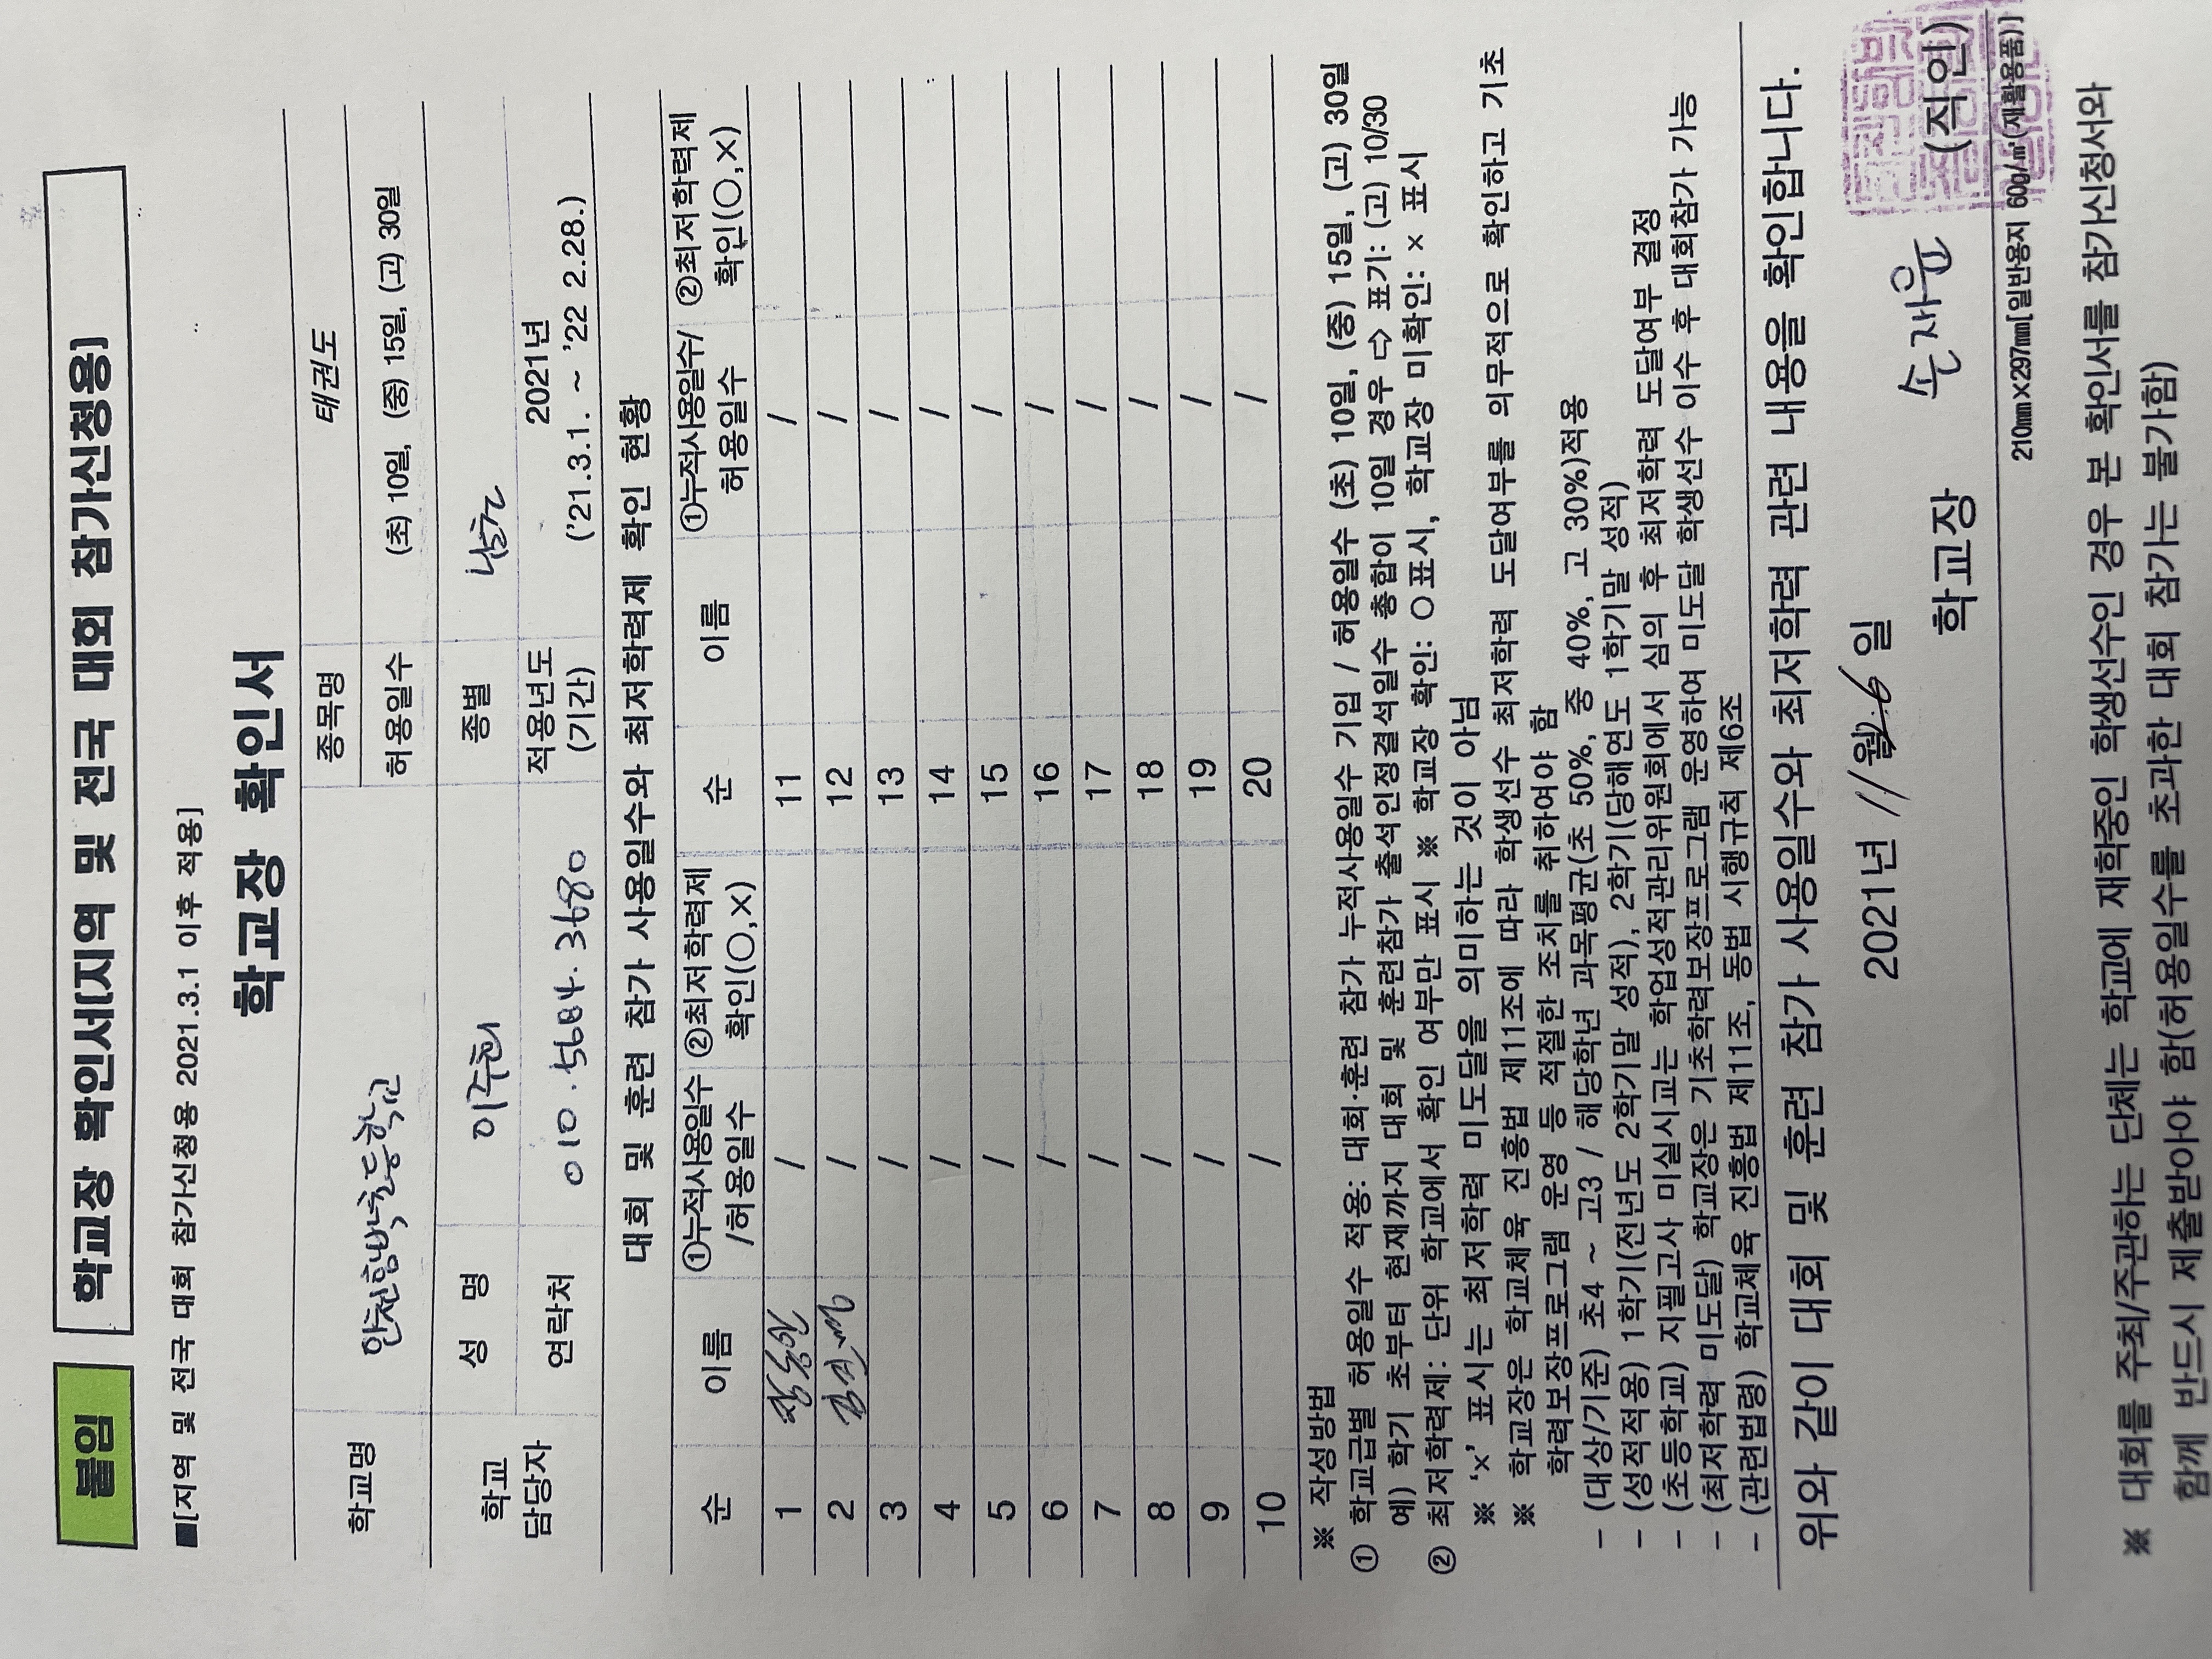 붙임
학교장 확인서[지역 및 전국 대회 참가신청용]
■[지역 및 전국 대회 참가신청용 2021.3.1 이후 적용]
학교장 확인서
학교명 인천함박초등학교 종목명 태권도
허용일수 (초) 10일, (중) 15일, (고) 30일
학교 담당자 성 명 이주현 종별 남초
연락처 010.5684.3680 적용년도 (기간) 2021년 ('21.3.1. ~ '22 2.28.)
대회 및 훈련 참가 사용일수와 최저학력제 확인 현황
순 이름 ①누적사용일수 /허용일수 ②최저학력제 확인(○,×) 순 이름 ①누적사용일수/ 허용일수 ②최저학력제 확인(○,×)
1 / 11 /
2 / 12 /
3 / 13 /
4 / 14 /
5 / 15 /
6 / 16 /
7 / 17 /
8 / 18 /
9 / 19 /
10 / 20 /
※ 작성방법
① 학교급별 허용일수 적용: 대회·훈련 참가 누적사용일수 기입 / 허용일수 (초) 10일, (중) 15일, (고) 30일
예) 학기 초부터 현재까지 대회 및 훈련참가 출석인정결석일수 총합이 10일 경우 ⇨ 표기: (고) 10/30
② 최저학력제: 단위 학교에서 확인 여부만 표시 ※ 학교장 확인: ○표시, 학교장 미확인: × 표시
※ 'x' 표시는 최저학력 미도달을 의미하는 것이 아님
※ 학교장은 학교체육 진흥법 제11조에 따라 학생선수 최저학력 도달여부를 의무적으로 확인하고 기초
학력보장프로그램 운영 등 적절한 조치를 취하여야 함
- (대상/기준) 초4 ~ 고3 / 해당학년 과목평균(초 50%, 중 40%, 고 30%)적용
- (성적적용) 1학기(전년도 2학기말 성적), 2학기(당해연도 1학기말 성적)
- (초등학교) 지필고사 미실시교는 학업성적관리위원회에서 심의 후 최저학력 도달여부 결정
- (최저학력 미도달) 학교장은 기초학력보장프로그램 운영하여 미도달 학생선수 이수 후 대회참가 가능
- (관련법령) 학교체육 진흥법 제11조, 동법 시행규칙 제6조
위와 같이 대회 및 훈련 참가 사용일수와 최저학력 관련 내용을 확인합니다.
2021년 11월 26일
학교장 손재윤 (직인)
210㎜×297㎜[일반용지 60g/㎡(재활용품)]
※ 대회를 주최/주관하는 단체는 학교에 재학중인 학생선수인 경우 본 확인서를 참가신청서와
함께 반드시 제출받아야 함(허용일수를 초과한 대회 참가는 불가함)